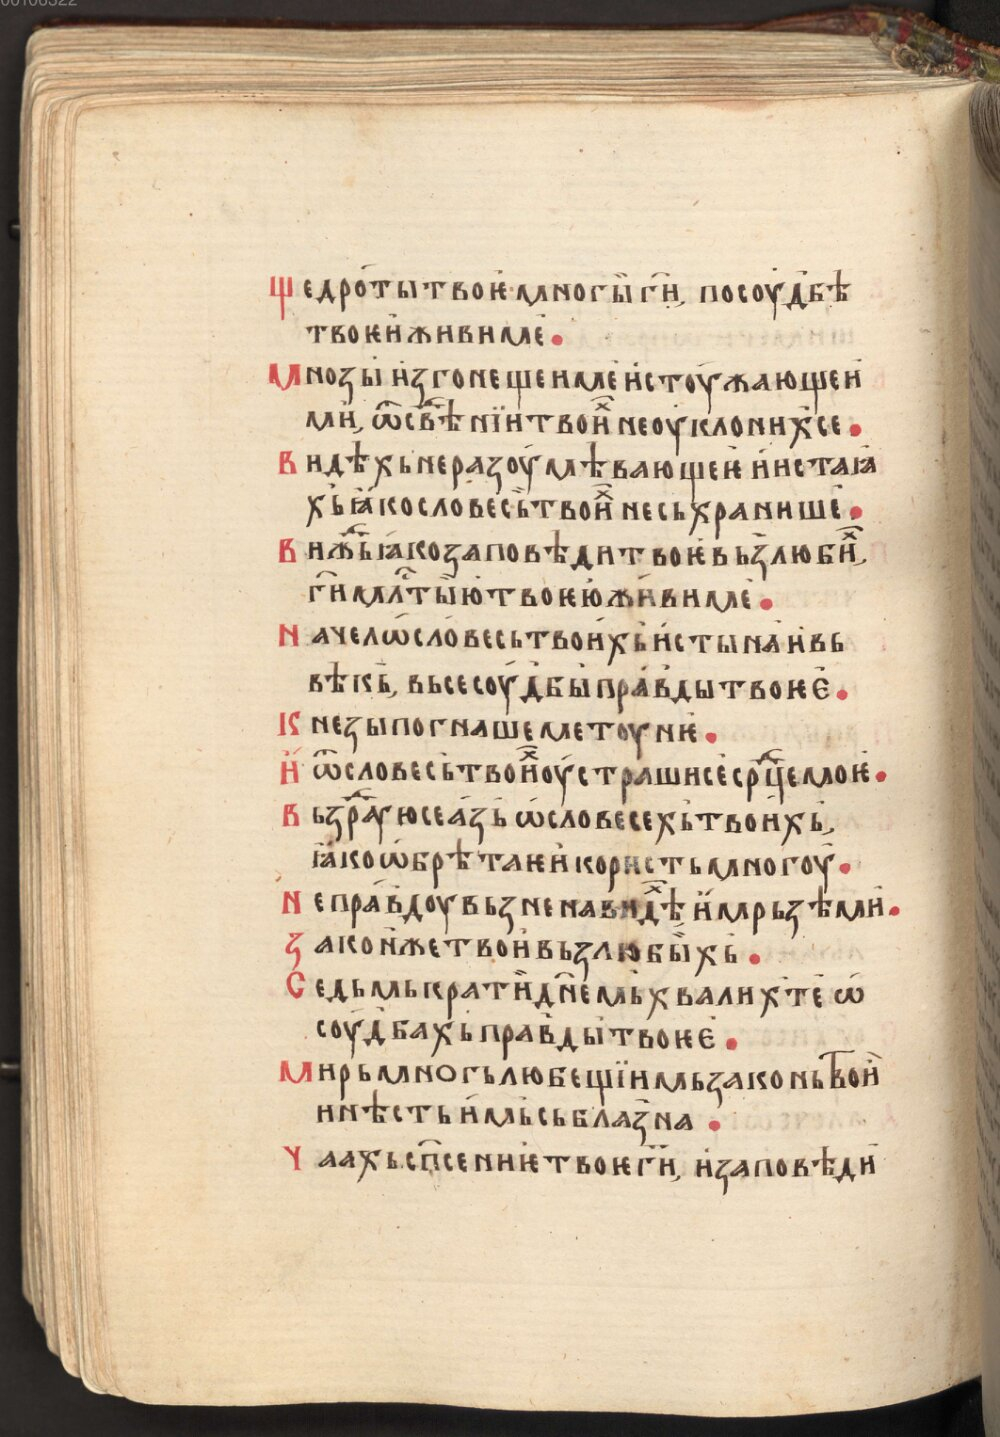 00106322
Щедро́ты твоѥ҆ мно́гы̏ гн҃и, по соу́дбѣ
твоѥи҆ живи ме҆.
Мнозы̏ и҆згонещеи ме҆ и҆ стоу́жающеи҆
ми҆, ѿ свѣ́нїи твои҆ⷯ не оу҆клонихсе.
Видѣхь неразоу́мѣвающеѥ и҆ истаꙗ
хь҆ ꙗ҆ко словесь҆ твои҆ⷯ не сьхранише҆.
Вижⷣь ꙗ҆ко заповѣди твоѥ҆ вьзлюбиⷯ,
гн҃и млⷭты̏ю҆ твоѥю҆ живи ме҆.
Начел̾о ѡ҆ слове́сь твои҆хь҆ и҆стына҆ и҆ вь
вѣкь҆, вьсе соу́дбы҆ пра́вды твоѥѥ҆.
Кнезы погнаше ме тоуниѥ.
И҆ ѿ словесь҆ твои҆ⷯ оу҆страши се҆ срⷣце моѥ҆.
Вьзраⷣую се а҆зь҆ ѡ҆ словесехь҆ твои҆хь҆,
ꙗ҆ко ѡ҆брѣтаѥи҆ користь многоу҆.
Непра́вдоу вьзненавидѣⷯ и҆ мрьзѣ ми҆.
закон же твои҆ вьзлюбы̏хь҆.
Седьмь крати҆ дн҃емь҆ хвалихь те҆ ѡ҆
соу́дбахь҆ пра́вды҆ твоѥѥ.
Мирь многь любещїимь законь твои҆
и нѣсть и҆мь҆ сьблаз̾на.
Чаахь сп҃сениꙗ҆ твоѥ гн҃и, и҆ заповѣди҆